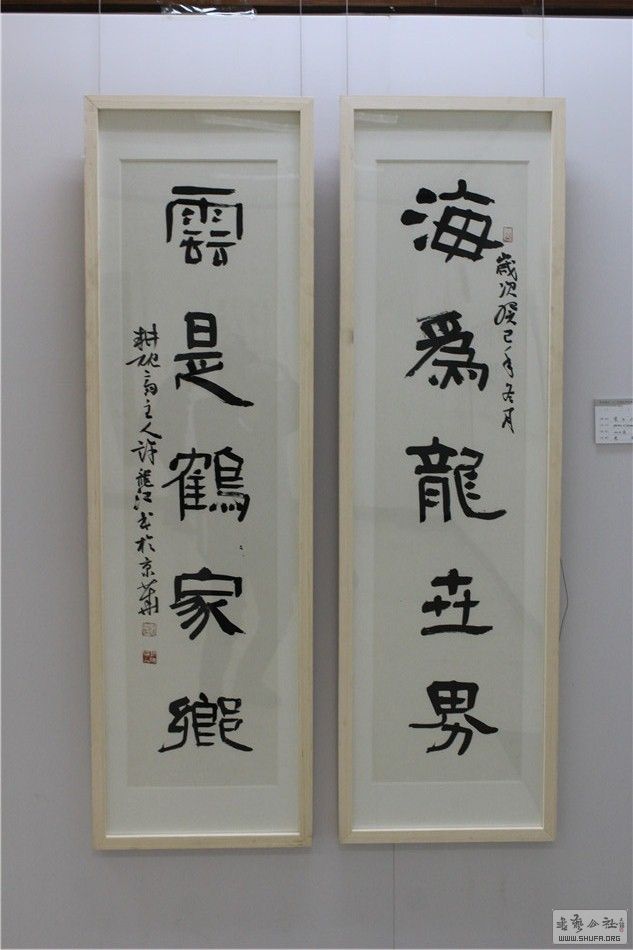 海為龍世界
歲次癸巳年冬月
雲是鶴家鄉
耕硯齋主人許龍江書於京華
書藝公社
WWW.SHUFA.ORG